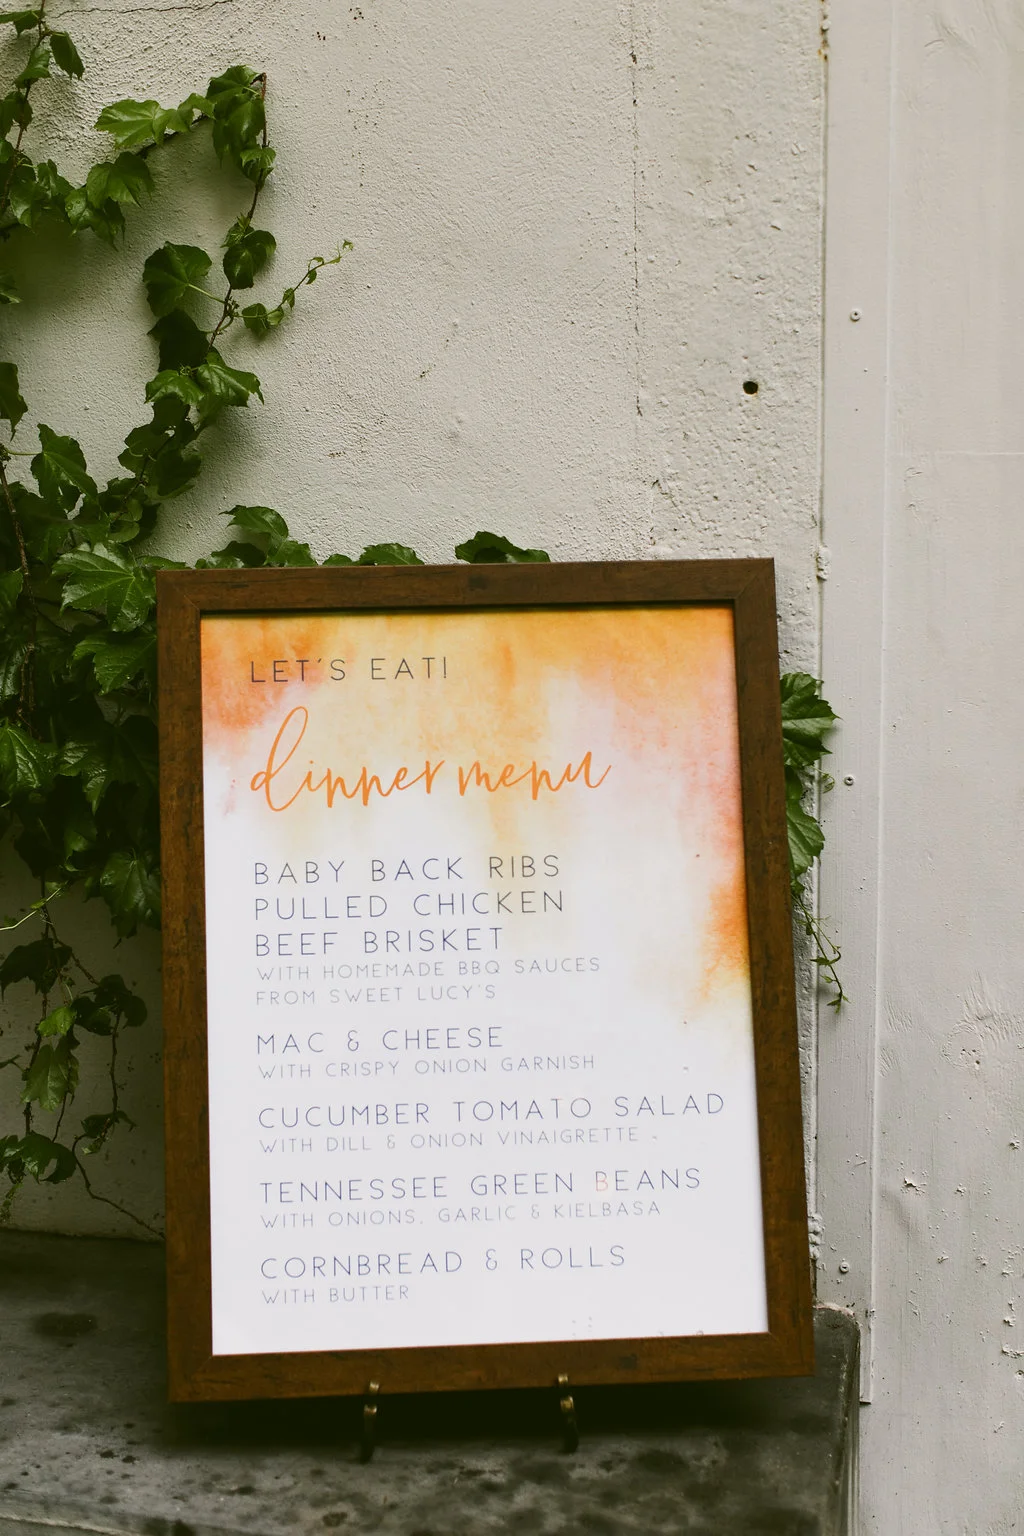 LET'S EAT!
dinner menu
BABY BACK RIBS
PULLED CHICKEN
BEEF BRISKET
WITH HOMEMADE BBQ SAUCES
FROM SWEET LUCY'S
MAC & CHEESE
WITH CRISPY ONION GARNISH
CUCUMBER TOMATO SALAD
WITH DILL & ONION VINAIGRETTE
TENNESSEE GREEN BEANS
WITH ONIONS, GARLIC & KIELBASA
CORNBREAD & ROLLS
WITH BUTTER